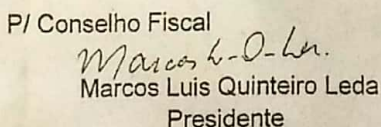 P/ Conselho Fiscal
Marcos
Marcos Luis Quinteiro Leda
Presidente